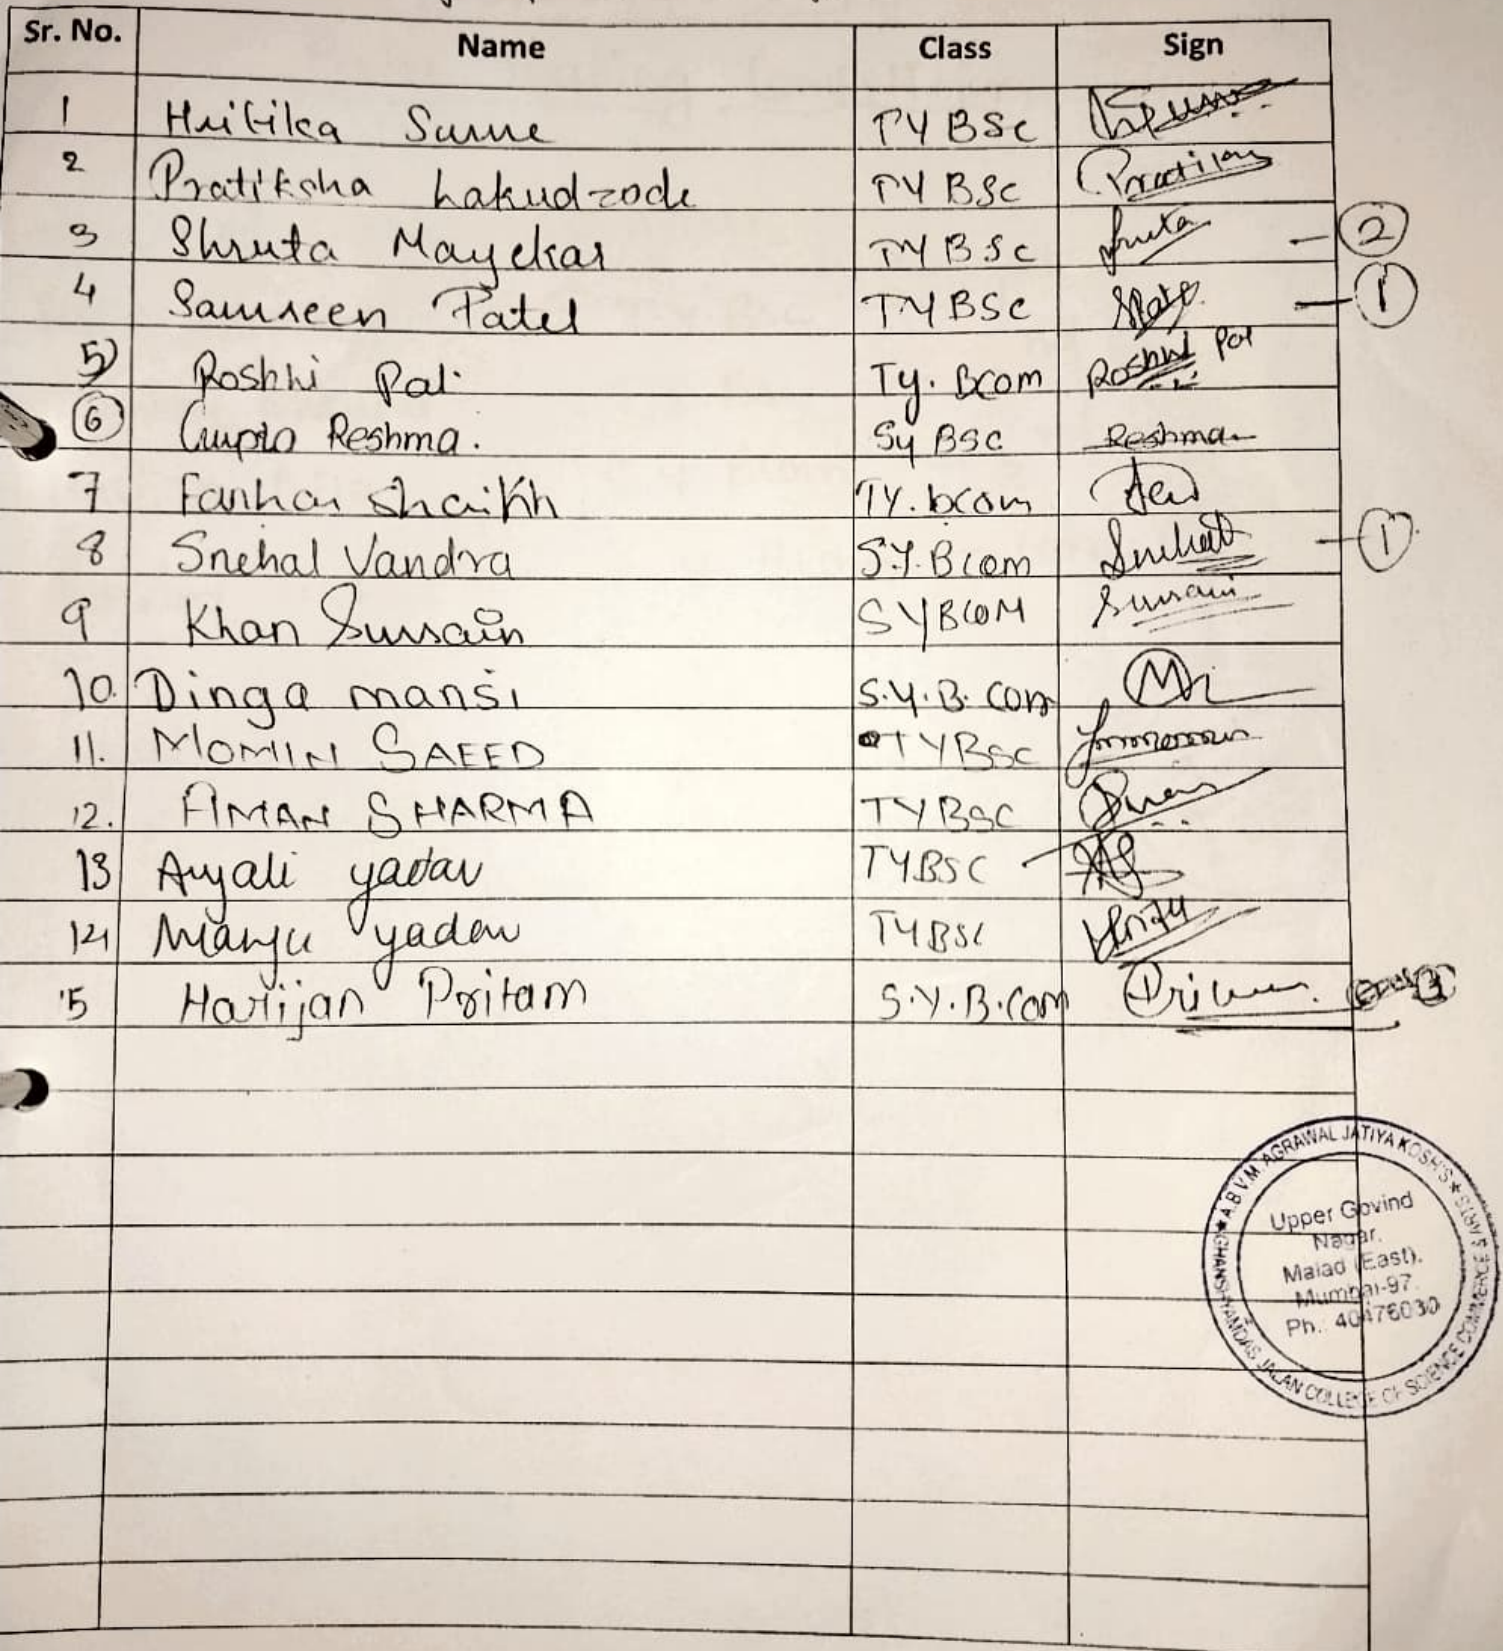 Sr. No. Name Class Sign
1 Hritika Surve TYBSc
2 Pratiksha Lakudzode TYBSc
3 Shruta Mayekar TYBSc Sruta – 2
4 Samreen Patel TYBSc – 1
5) Roshni Pal Ty. Bcom Roshni Pal
6 Gupta Reshma. Sy BSC Reshma
7 Farhan Shaikh TY. bcom
8 Snehal Vandra S.Y.Bcom Snehal – 1
9 Khan SYBCOM
10. Dinga mansi S.Y.B. com
11. MOMIN SAEED TYBSC
12. AMAN SHARMA TYBSC
13 Anjali yadav TYBSC
14 Manju yadav TYBSC
15 Harijan Pritam S.Y.B.Com 3
★ A.B.V.M. AGRAWAL JATIYA KOSH'S ★
GHANSHYAMDAS JALAN COLLEGE OF SCIENCE COMMERCE & ARTS
Upper Govind
Nagar,
Malad (East),
Mumbai-97.
Ph.: 40476030